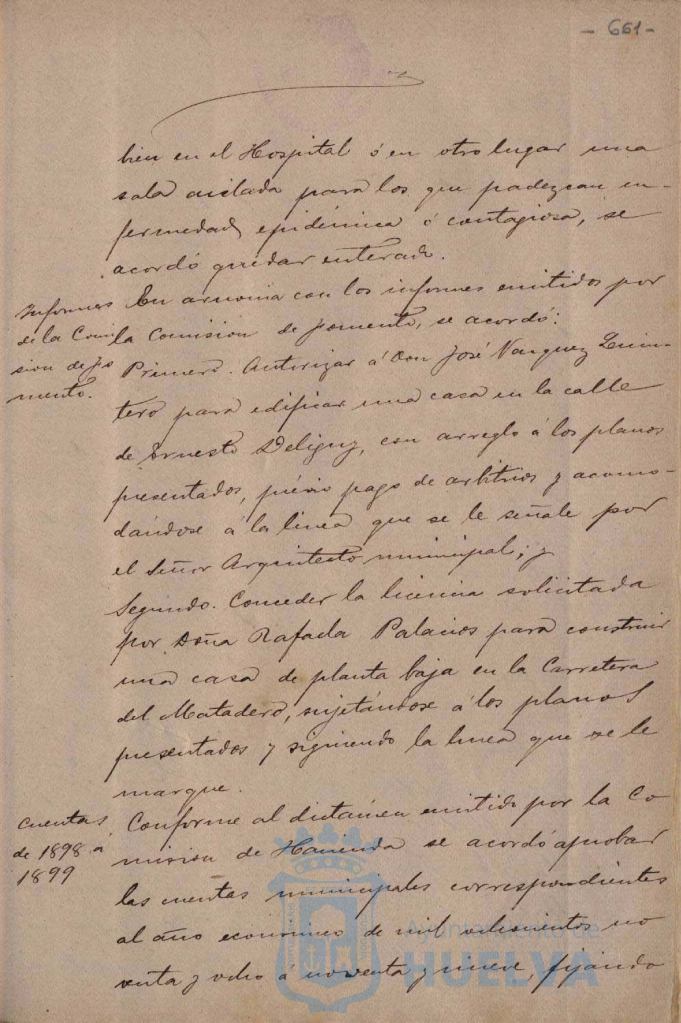 - 661 -
bien en el Hospital ó en otro lugar una
sala aislada para los que padezcan en-
fermedad epidémica ó contagiosa, se
acordó quedar enterado.
Informes
de la Comi
sion de Fo
mento.
En armonia con los informes emitidos por
la Comision de Fomento, se acordó:
Primero. Autorizar á Don José Vazquez Quin-
tero para edificar una casa en la calle
de Ernesto Deligny, con arreglo á los planos
presentados, prévio pago de arbitrios y acomo-
dándose á la linea que se le señale por
el Señor Arquitecto municipal; y
Segundo. Conceder la licencia solicitada
por Doña Rafaela Palacios para construir
una casa de planta baja en la Carretera
del Matadero, sujetándose á los planos
presentados y siguiendo la linea que se le
marque.
Cuentas
de 1898 a
1899
Conforme al dictámen emitido por la Co
mision de Hacienda se acordó aprobar
las cuentas municipales correspondientes
al año economico de mil ochocientos no
venta y ocho á noventa y nueve fijando
Ayuntamiento de
HUELVA